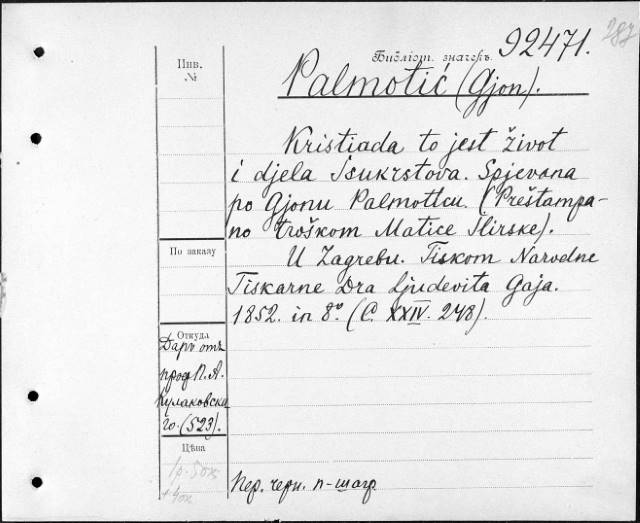 287
Инв.
№
Библіот. значекъ 92471.
Palmotić (Gjon).
Kristiada to jest život
i djela Isukrstova. Spjevana
po Gjonu Palmotícu. (Preštampa-
no troškom Matice Ilirske).
U Zagrebu. Tiskom Narodne
Tiskarne Dra Ljudevita Gaja.
1852. in 8º. (C. XXIV. 248).
По заказу
Откуда
Даръ отъ
проф П. А.
Кулаковска
го. (523).
Цѣна
1р. 50к
+40к
Пер. черн. п-шагр